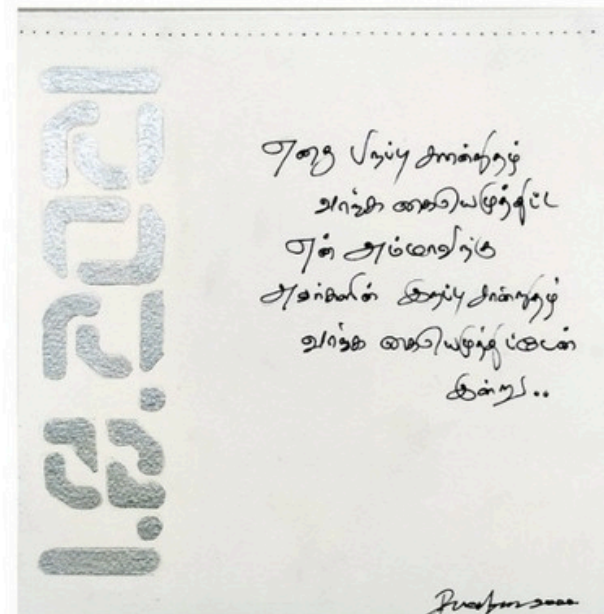 1.8.2021
எனது பிறப்பு சான்றிதழ்
வாங்க கையெழுத்திட்ட
என் அம்மாவிற்கு
அவர்களின் இறப்பு சான்றிதழ்
வாங்க கையெழுத்திட்டேன்
இன்று..